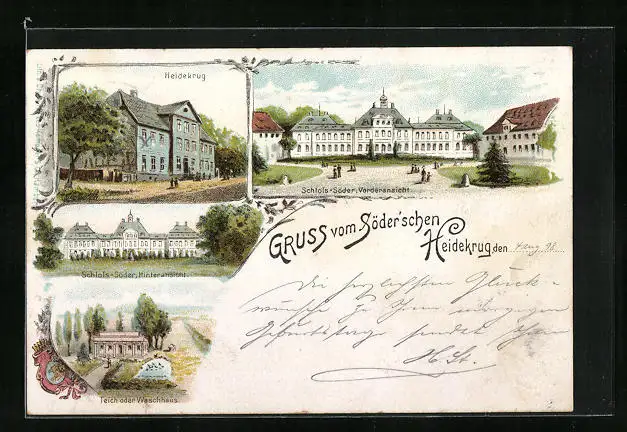 Heidekrug
Schloß-Söder, Vorderansicht
GRUSS vom Söder'schen
Heidekrug, den 4 Aug. 98.
Schloß-Söder, Hinteransicht.
Die herzlichsten Glück-
wünsche zu Ihrem
Geburtstage sendet Ihnen
H. St.
Teich oder Waschhaus.